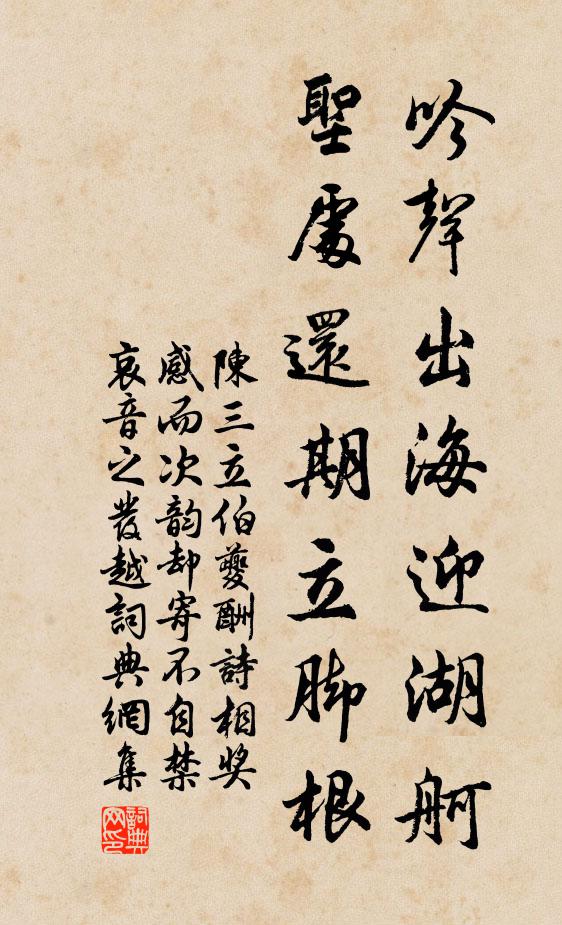 吟聲出海迎湖舸
聖處還期立脚根
陳三立伯夔酬詩相奖
感而次韵却寄不自禁
哀音之發越詞典網集
詞典网印